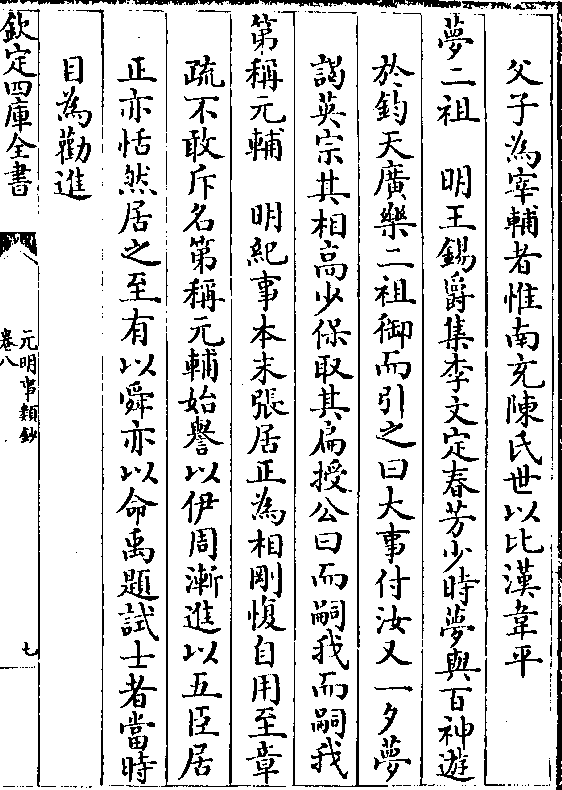 父子為宰輔者惟南充陳氏世以比漢韋平
夢二祖　明王錫爵集李文定春芳少時夢與百神遊
於鈞天廣樂二祖御而引之曰大事付汝又一夕夢
謁英宗其相高少保取其扁授公曰而嗣我而嗣我
第稱元輔　明紀事本末張居正為相剛愎自用至章
疏不敢斥名第稱元輔始譽以伊周漸進以五臣居
正亦恬然居之至有以舜亦以命禹題試士者當時
目為勸進
欽定四庫全書
元明事類鈔
卷八
七